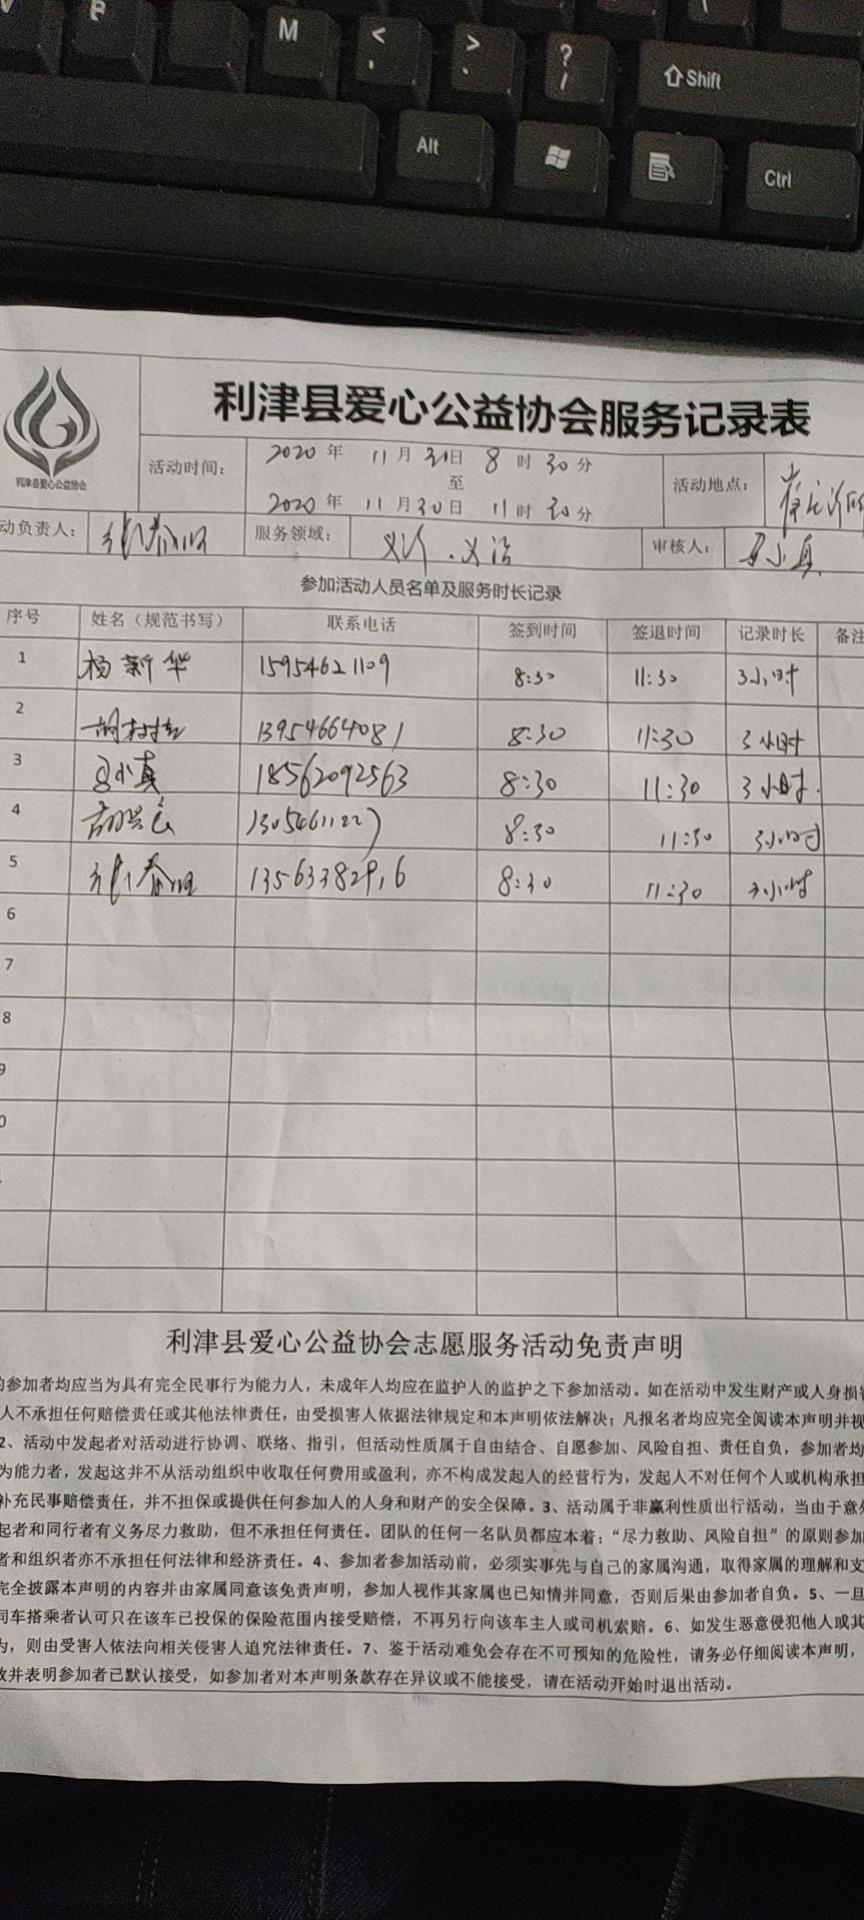 M < , > . ? / Shift
Alt Ctrl
利津县爱心公益协会
利津县爱心公益协会服务记录表
活动时间: 2020年 11月30日 8时30分
至
2020年 11月30日 11时30分
活动地点:
动负责人: 服务领域: 义诊.义治 审核人: 小真
参加活动人员名单及服务时长记录
序号 姓名(规范书写) 联系电话 签到时间 签退时间 记录时长 备注
1 杨新华 15954621109 8:30 11:30 3小时
2 胡 13954664081 8:30 11:30 3小时
3 小真 18562092563 8:30 11:30 3小时.
4 8:30 11:30 3小时
5 8:30 11:30 3小时
6
7
8
9
0
利津县爱心公益协会志愿服务活动免责声明
的参加者均应当为具有完全民事行为能力人,未成年人均应在监护人的监护之下参加活动。如在活动中发生财产或人身损害
人不承担任何赔偿责任或其他法律责任,由受损害人依据法律规定和本声明依法解决;凡报名者均应完全阅读本声明并视
2、活动中发起者对活动进行协调、联络、指引,但活动性质属于自由结合、自愿参加、风险自担、责任自负,参加者均
为能力者,发起这并不从活动组织中收取任何费用或盈利,亦不构成发起人的经营行为,发起人不对任何个人或机构承担
补充民事赔偿责任,并不担保或提供任何参加人的人身和财产的安全保障。3、活动属于非赢利性质出行活动,当由于意外
起者和同行者有义务尽力救助,但不承担任何责任。团队的任何一名队员都应本着:“尽力救助、风险自担”的原则参加
者和组织者亦不承担任何法律和经济责任。4、参加者参加活动前,必须实事先与自己的家属沟通,取得家属的理解和支
完全披露本声明的内容并由家属同意该免责声明,参加人视作其家属也已知情并同意,否则后果由参加者自负。5、一旦
同车搭乘者认可只在该车已投保的保险范围内接受赔偿,不再另行向该车主人或司机索赔。6、如发生恶意侵犯他人或其
为,则由受害人依法向相关侵害人追究法律责任。7、鉴于活动难免会存在不可预知的危险性,请务必仔细阅读本声明,
改并表明参加者已默认接受,如参加者对本声明条款存在异议或不能接受,请在活动开始时退出活动。